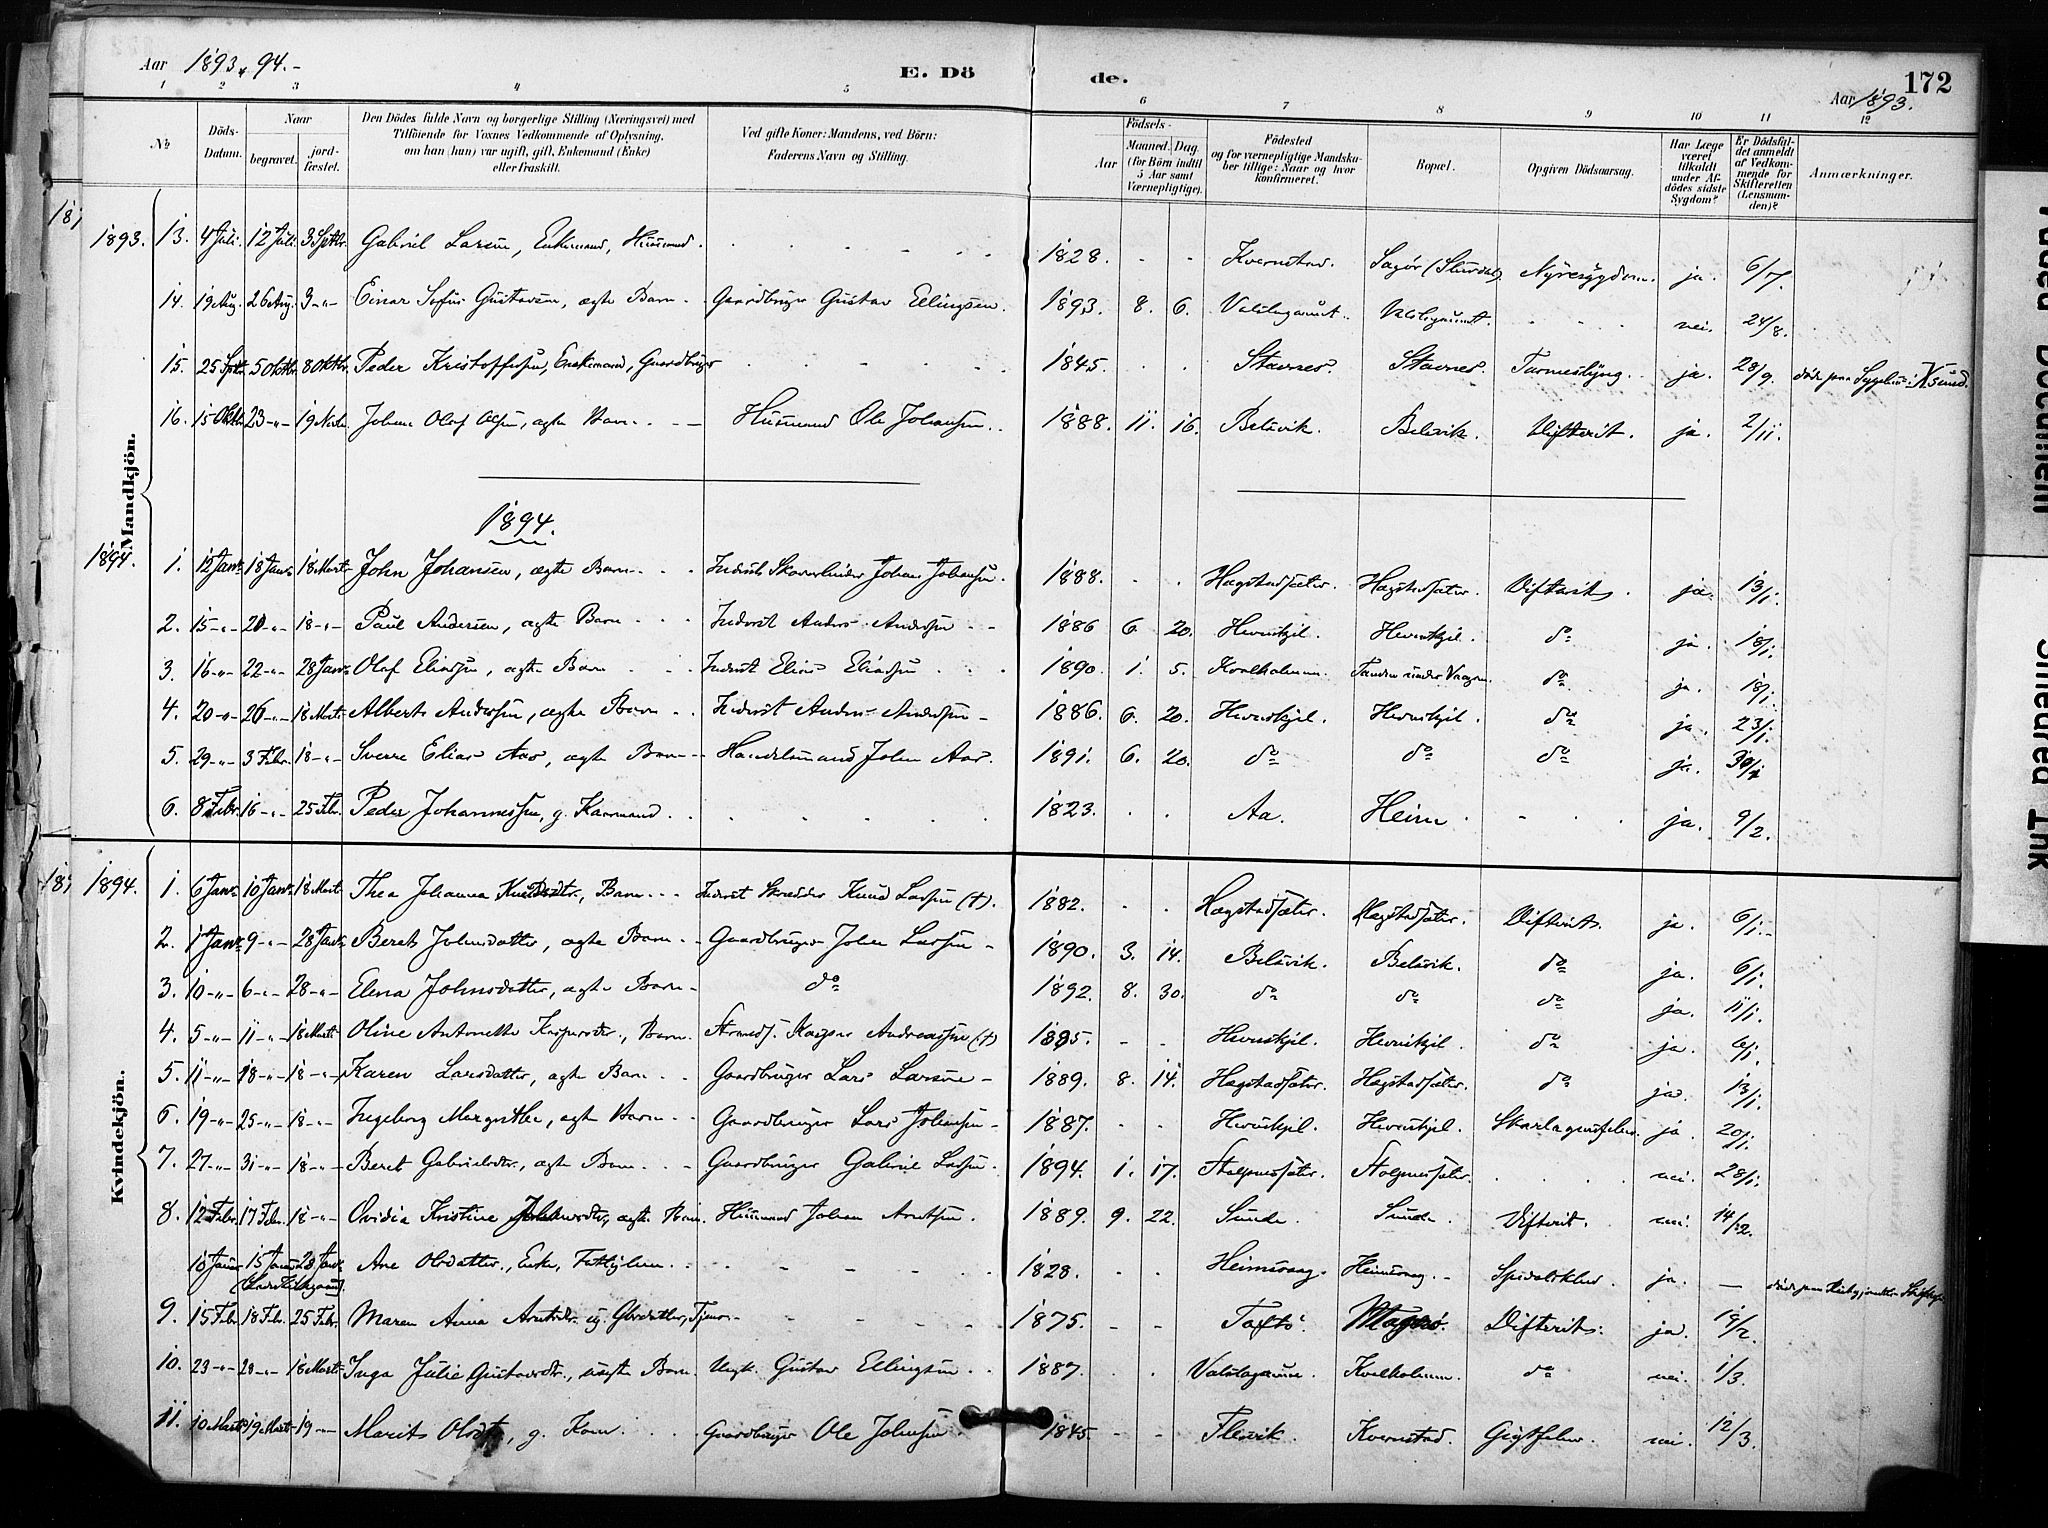 Aar 1893 & 94.-
E. Dö
de.
172
Aar 1893.
1 2 3 4 5 6 7 8 9 10 11 12
№
Döds-Datum.
Naar
begravet.
jord-fæstet.
Den Dödes fulde Navn og borgerlige Stilling (Næringsvei) med
Tilföiende for Voxnes Vedkommende af Oplysning,
om han (hun) var ugift, gift, Enkemand (Enke)
eller fraskilt.
Ved gifte Koner: Mandens, ved Börn:
Faderens Navn og Stilling.
Födsels-
Aar
Maaned. Dag.
(for Börn indtil
5 Aar samt
Værnepligtige).
Födested
og for værnepligtige Mandska-
ber tillige: Naar og hvor
konfirmeret.
Bopæl.
Opgiven Dödsaarsag.
Har Læge
været
tilkaldt
under Af-
dödes sidste
Sygdom?
Er Dödsfal-
det anmeldt
af Vedkom-
mende for
Skifteretten
(Lensman-
den)?
Anmærkninger.
Mandkjön.
1893. 13. 4 Juli. 12 Juli. 3 Septbr. Gabriel Larsen, Enkemand, Husmand. 1828. Kvernstad. Nyresygdom. ja. 6/7.
14. 19 Aug. 26 Aug. 3 -"- Einar Sefus Gustavsen, ægte Barn. Gaardbruger Gustav Ellingsen. 1893. 8. 6. nei. 24/8.
15. 25 Sptr. 5 Oktbr. 8 Oktbr. Peder Kristoffersen, Enkemand, Gaardbruger 1845. Stavnes. Stavnes. Tarmeslyng. ja. 28/9. døde paa Sygehus i Ksund.
16. 15 Oktbr. 23 -"- 19 Novbr. Johan Olaf Olsen, ægte Barn. Husmand Ole Johansen. 1888. 11. 16. Belsvik. Belsvik. Difterit. ja. 2/11.
1894.
1894. 1. 12 Janr. 18 Janr. 18 Marts John Johansen, ægte Barn. Inderst Johan Johansen. 1888. Hagstadsæter. Hagstadsæter. Difterit. ja. 13/1.
2. 15 -"- 20 -"- 18 -"- Paul Andersen, ægte Barn. Inderst Anders Andersen 1886 6. 20. Hevnskjel. Hevnskjel. do ja. 18/1.
3. 16 -"- 22 -"- 28 Janr. Olaf Eliassen, ægte Barn Inderst Elias Eliassen 1890. 1. 5. Kvalholmen. do ja. 18/1.
4. 20 -"- 26 -"- 18 Marts Albert Andersen, ægte Barn Inderst Anders Andersen 1886. 6. 20. Hevnskjel. Hevnskjel. do ja. 23/1.
5. 29 -"- 3 Febr. 18 -"- Sverre Elias Aas, ægte Barn Handelsmand John Aas. 1891. 6. 20. do do do ja. 30/1
6. 8 Febr. 16 -"- 25 Febr. Peder Johannessen, g. Kaarmand. 1823. Aa. Heim. ja. 9/2.
Kvindekjön.
1894. 1. 6 Janr. 10 Janr. 18 Marts Thea Johanna Knudsdtr., Barn Inderst Skrædder Knud Larsen (†). 1882. Hagstadsæter. Hagstadsæter. Difterit. ja. 6/1.
2. 1 Janr. 9 -"- 28 Janr. Beret Johnsdatter, ægte Barn Gaardbruger John Larsen 1890. 3. 14. Belsvik. Belsvik. do ja. 6/1.
3. 10 -"- 6 -"- 28 -"- Elena Johnsdatter, ægte Barn do 1892. 8. 30. do do do ja. 11/1.
4. 5 -"- 11 -"- 18 Marts Oline Antonette Kaspersdtr., Barn. Strands. Kasper Andreassen (†) 1885. Hevnskjel. Hevnskjel. do ja. 6/1.
5. 11 -"- 18 -"- 18 -"- Karen Larsdatter, ægte Barn Gaardbruger Lars Larsen 1889. 8. 14. Hagstadsæter. Hagstadsæter. do ja. 13/1.
6. 19 -"- 25 -"- 18 -"- Ingeborg Margrethe, ægte Barn Gaardbruger Lars Johansen 1887. Hevnskjel. Hevnskjel. Skarlagensfeber ja. 20/1.
7. 27 -"- 31 -"- 18 -"- Beret Gabrielsdtr., ægte Barn Gaardbruger Gabriel Larsen. 1894. 1. 17. Stolpnessæter. Stolpnessæter. nei. 28/1.
8. 12 Febr. 17 Febr. 18 -"- Ovidia Kristine Johansdtr., ægte Barn. Husmand Johan Arntsen. 1889. 9. 22. Sunde. Sunde. Difterit. nei. 14/2.
10 Janr. 15 Janr. 28 Janr. Ane Olsdatter, Enke, Fattiglem. 1828. Heimsvaag. Heimsvaag. Spedalskhed. ja. —
9. 15 Febr. 18 Febr. 25 Febr. Maren Anna Arntsdtr. ug. Gbrdatter, Tjener 1875. Taftö. Magerö. Difterit. ja. 19/2.
10. 23 -"- 28 -"- 18 Marts Inga Julie Gustavsdtr., uægte Barn. Ungk. Gustav Ellingsen 1887. Kvalholmen. do nei. 1/3.
11. 10 Marts 19 Marts 19 -"- Marit Olsdtr, g. Kone. Gaardbruger Ole Johnsen 1845. Flesvik. Kvernstad. Gigtfeber. nei. 12/3.